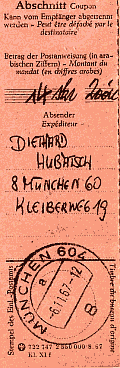 Abschnitt Coupon
Kann vom Empfänger abgetrennt
werden – Peut être détaché par le
destinataire
Betrag der Postanweisung (in ara-
bischen Ziffern) – Montant du
mandat (en chiffres arabes)
Absender
Expéditeur
DIETHARD
HUBATSCH
8 MÜNCHEN 60
KLEIBERWEG 19
MÜNCHEN 604
a
-6.11.67.-12
8
Stempel des Einl.-Postamts
Timbre du bureau d'origine
722 747 2 850 000 8.67
Kl. XI f